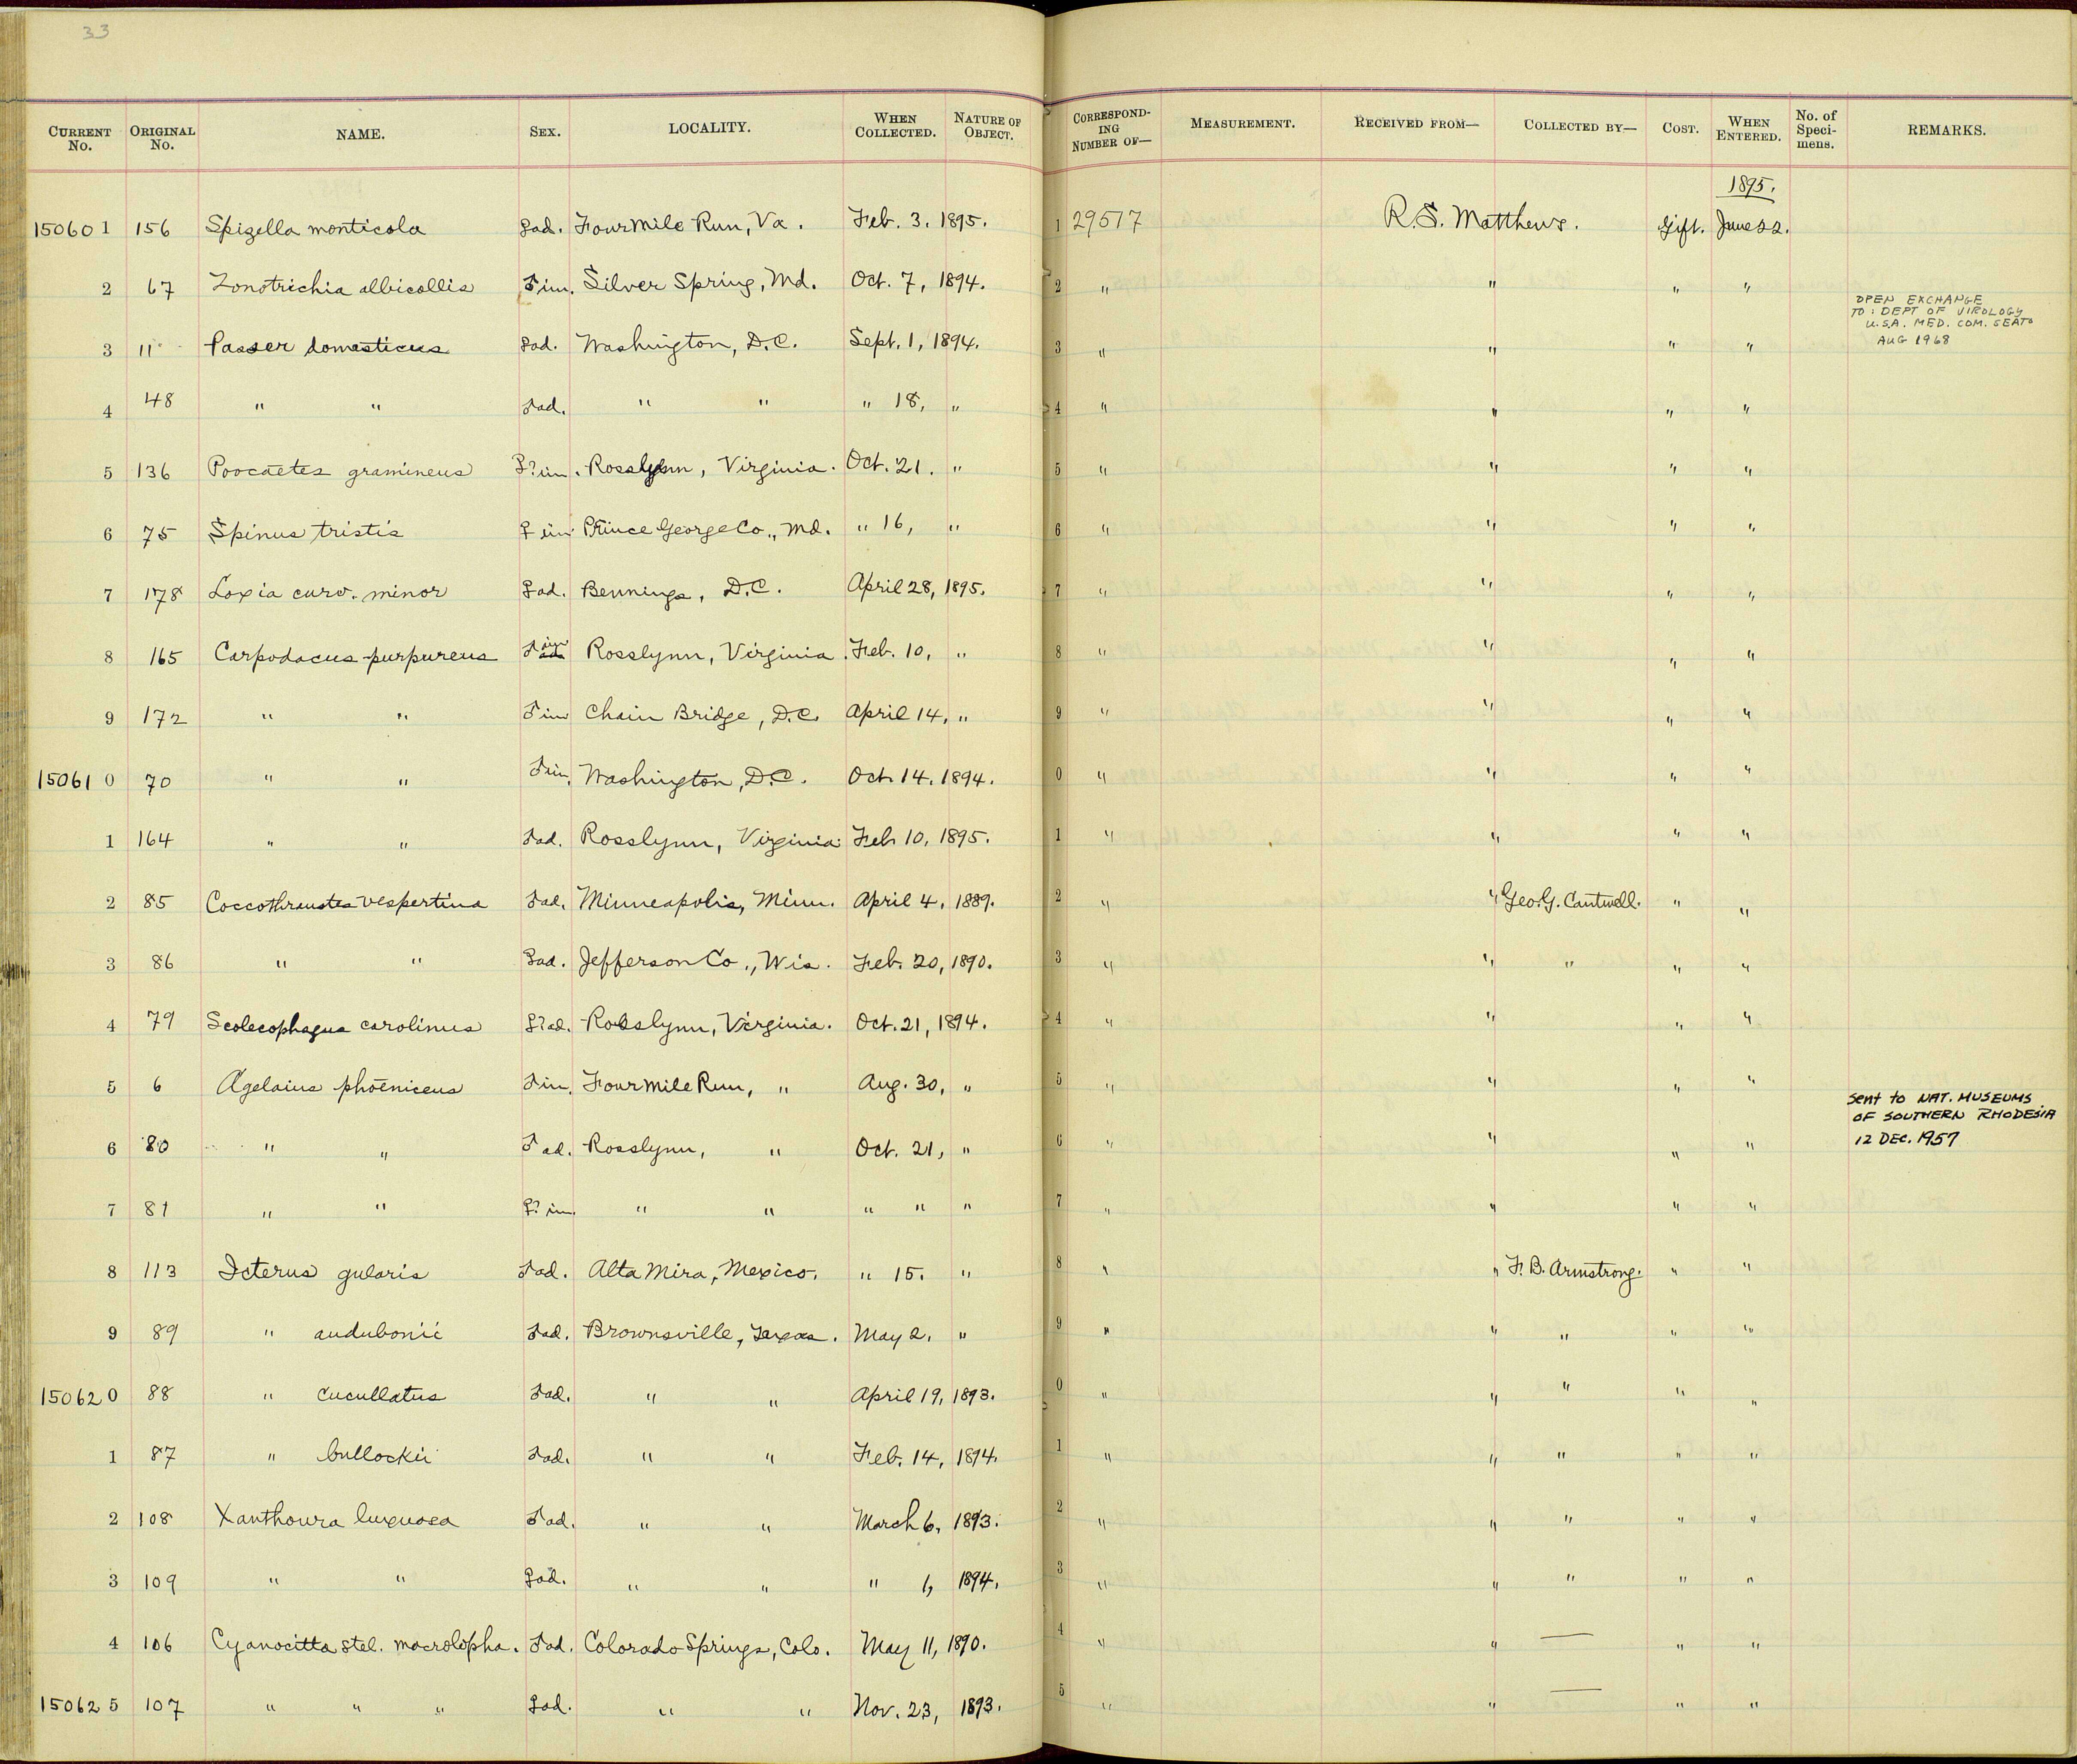 33
CURRENT No. ORIGINAL No. NAME. SEX. LOCALITY. WHEN COLLECTED. NATURE OF OBJECT. CORRESPONDING NUMBER OF— MEASUREMENT. RECEIVED FROM— COLLECTED BY— COST. WHEN ENTERED. No. of Specimens. REMARKS.
1895.
150601 156 Spizella monticola ♀ad. Four Mile Run, Va. Feb. 3. 1895. 1 29517 R.S. Matthews. Gift. June 22.
2 67 Zonotrichia albicollis ♂im. Silver Spring, Md. Oct. 7, 1894. 2 " " " "
OPEN EXCHANGE
TO: DEPT OF VIROLOGY
U.S.A. MED. COM. SEATO
AUG 1968
3 11 Passer domesticus ♀ad. Washington, D.C. Sept. 1, 1894. 3 " " " "
4 48 " " ♂ad. " " " 18, " 4 " " " "
5 136 Poocaetes gramineus ♀?im. Rosslynn, Virginia. Oct. 21. " 5 " " " "
6 75 Spinus tristis ♀ im. Prince George Co., Md. " 16, " 6 " " " "
7 178 Loxia curv. minor ♀ad. Bennings, D.C. April 28, 1895. 7 " " " "
8 165 Carpodacus purpureus ♂ im Rosslynn, Virginia. Feb. 10, " 8 " " " "
9 172 " " ♂im Chain Bridge, D.C. April 14, " 9 " " " "
150610 70 " " ♂im. Washington, D.C. Oct. 14. 1894. 0 " " " "
1 164 " " ♂ad. Rosslynn, Virginia Feb 10, 1895. 1 " " " "
2 85 Coccothraustes vespertina ♂ad. Minneapolis, Minn. April 4, 1889. 2 " " Geo. G. Cantwell. " "
3 86 " " ♀ad. Jefferson Co., Wis. Feb. 20, 1890. 3 " " " " "
4 79 Scolecophagus carolinus ♀?ad. Rosslynn, Virginia. Oct. 21, 1894. 4 " " " "
5 6 Agelaius phoeniceus ♂im. Four Mile Run, " Aug. 30, " 5 " " " "
Sent to NAT. MUSEUMS
OF SOUTHERN RHODESIA
12 DEC. 1957
6 80 " " ♂ad. Rosslynn, " Oct. 21, " 6 " " " "
7 81 " " ♀?im. " " " " " 7 " " " "
8 113 Icterus gularis ♂ad. Alta Mira, Mexico. " 15. " 8 " " F.B. Armstrong. " "
9 89 " audubonii ♂ad. Brownsville, Texas. May 2. " 9 " " " " "
150620 88 " cucullatus ♂ad. " " April 19, 1893. 0 " " " " "
1 87 " bullockii ♂ad. " " Feb. 14, 1894. 1 " " " " "
2 108 Xanthoura luxuosa ♂ad. " " March 6, 1893. 2 " " " " "
3 109 " " ♀ad. " " " 1, 1894. 3 " " " " "
4 106 Cyanocitta stel. macrolopha. ♂ad. Colorado Springs, Colo. May 11, 1890. 4 " " — " "
150625 107 " " " ♀ad. " " Nov. 23, 1893. 5 " " — " "